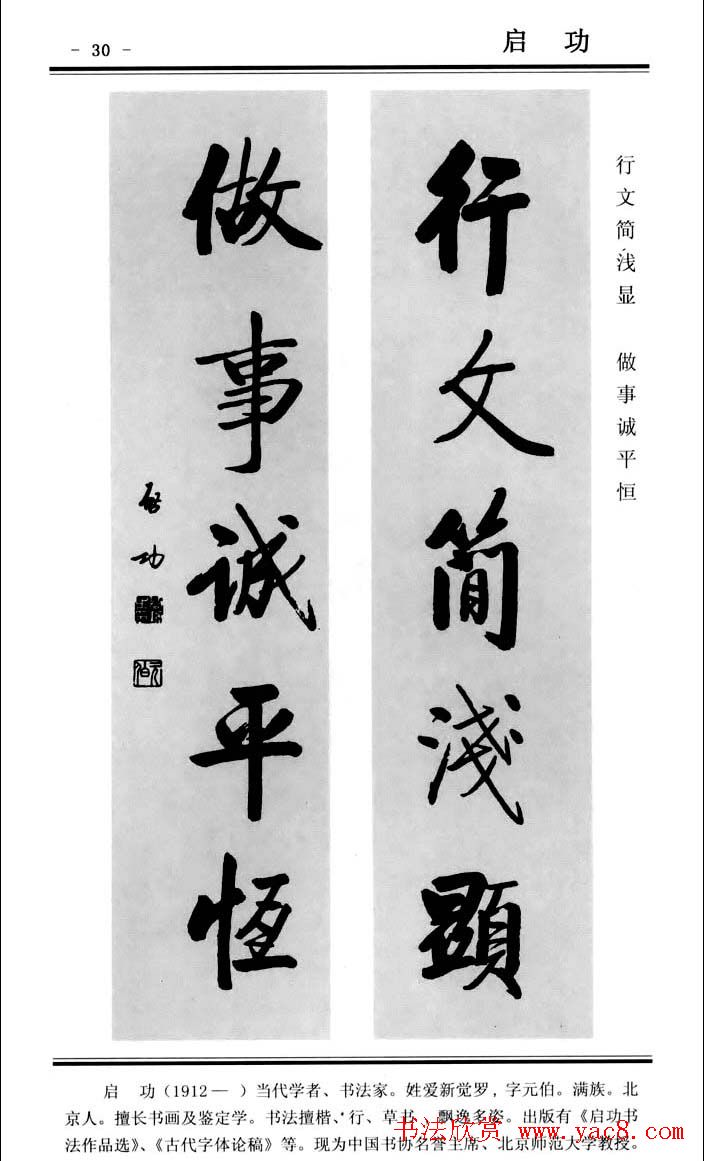 - 30 -
启 功
行文简浅显 做事诚平恒
行文簡淺顯
做事誠平恆
启功
启 功(1912— )当代学者、书法家。姓爱新觉罗,字元伯。满族。北
京人。擅长书画及鉴定学。书法擅楷、行、草书、飘逸多姿。出版有《启功书
法作品选》、《古代字体论稿》等。现为中国书协名誉主席、北京师范大学教授。
书法欣赏 www.yac8.com